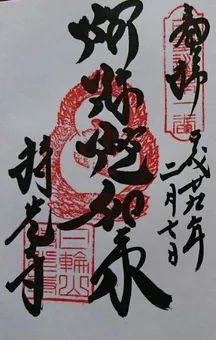 奉拝
平成廿九年
二月七日
阿弥陀如来
持光寺
日輪山